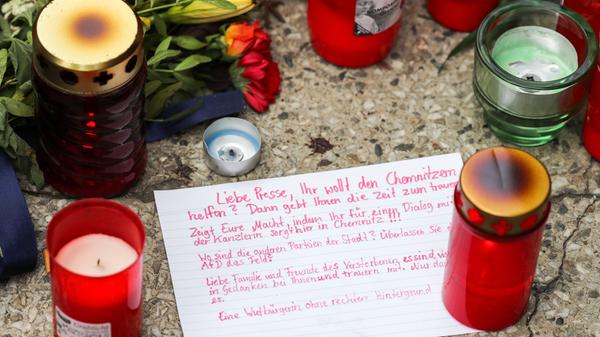 Liebe Presse, Ihr wollt den Chemnitzern
helfen? Dann gebt Ihnen die Zeit zum trauern
Zeigt Eure Macht, indem Ihr für einen Dialog mit
der Kanzlerin sorgt hier in Chemnitz!!!
Wo sind die anderen Parteien der Stadt? Überlassen Sie
AfD das Feld?
Liebe Familie und Freunde des Verstorbenen, es sind
in Gedanken bei Ihnen und trauern mit. Wir
Eine Wutbürgerin ohne rechten Hintergrund